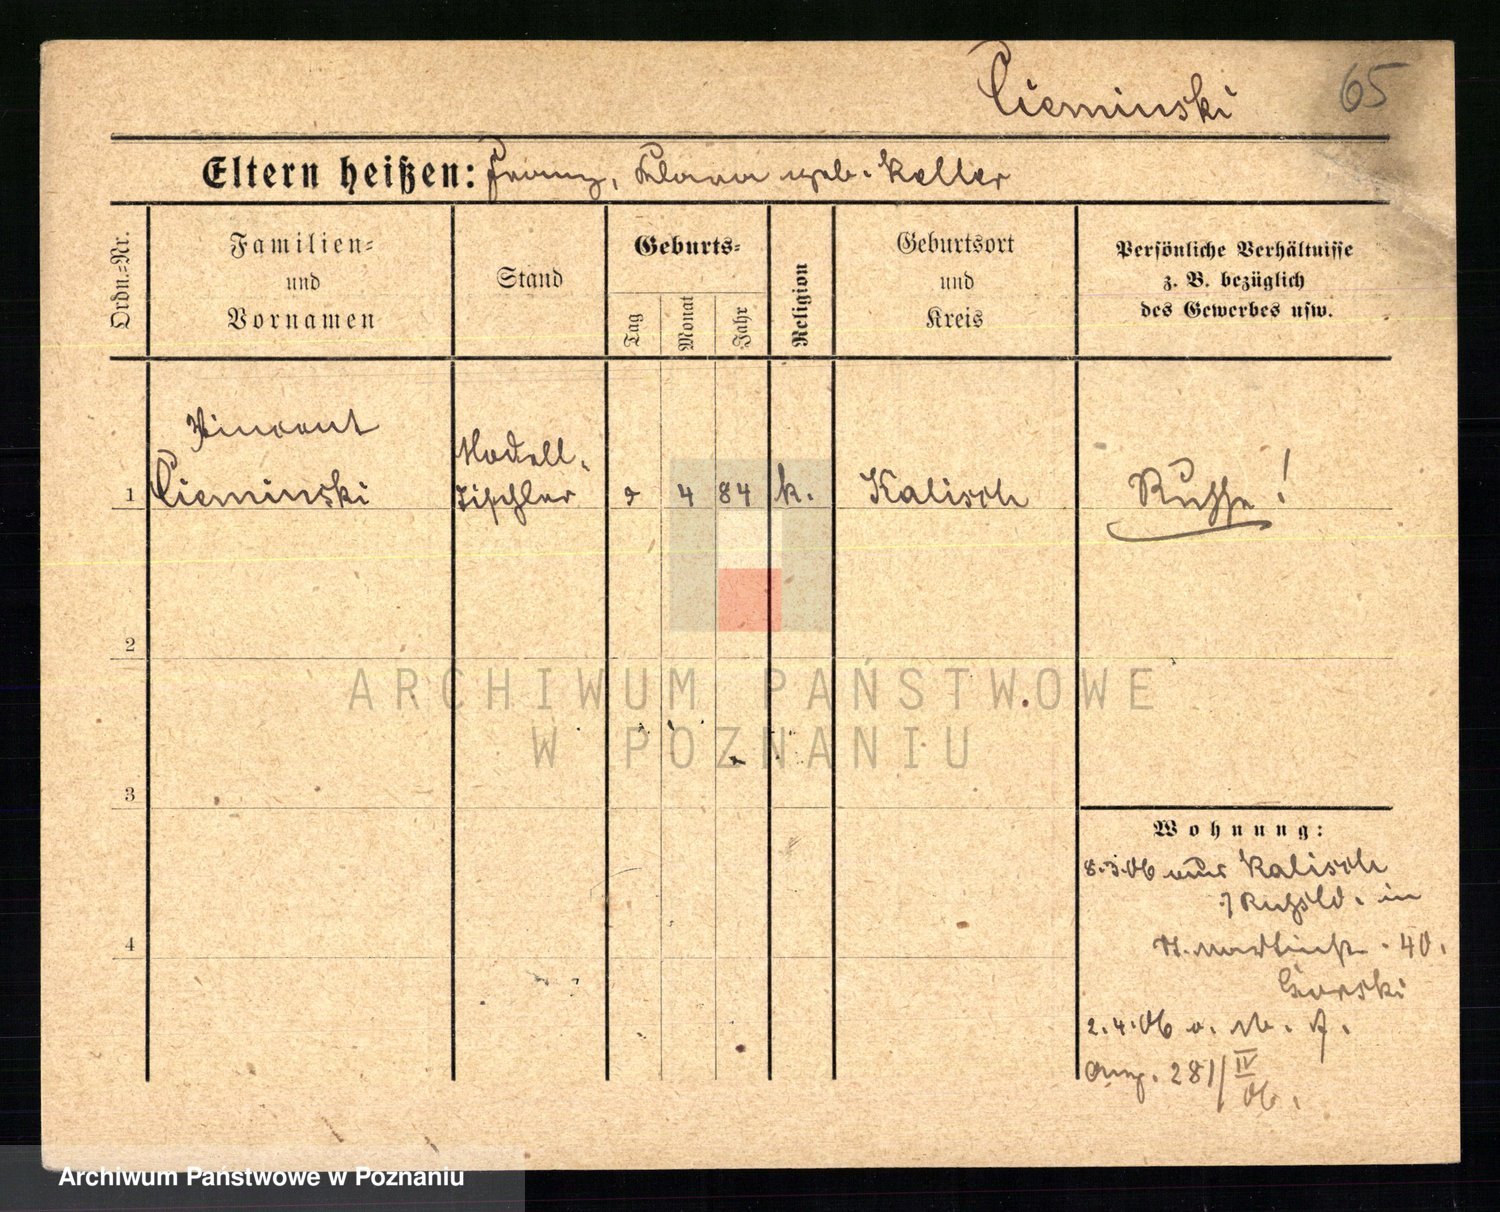 Cieminski
65
Eltern heißen: Franz, Klara geb. Keller
Ordn.-Nr.
Familien-
und
Vornamen
Stand
Geburts-
Tag
Monat
Jahr
Religion
Geburtsort
und
Kreis
Persönliche Verhältnisse
z. B. bezüglich
des Gewerbes usw.
Vincent
Modell-
1 Cieminski Tischler 4 84 k. Kalisch Russe!
2
ARCHIWUM PAŃSTWOWE
W POZNANIU
3
Wohnung:
8.3.06 aus Kalisch
Rußld. in
St. Martinstr. 40.
Gorski
2.4.06 o. A.
281/IV
06.
4
Archiwum Państwowe w Poznaniu